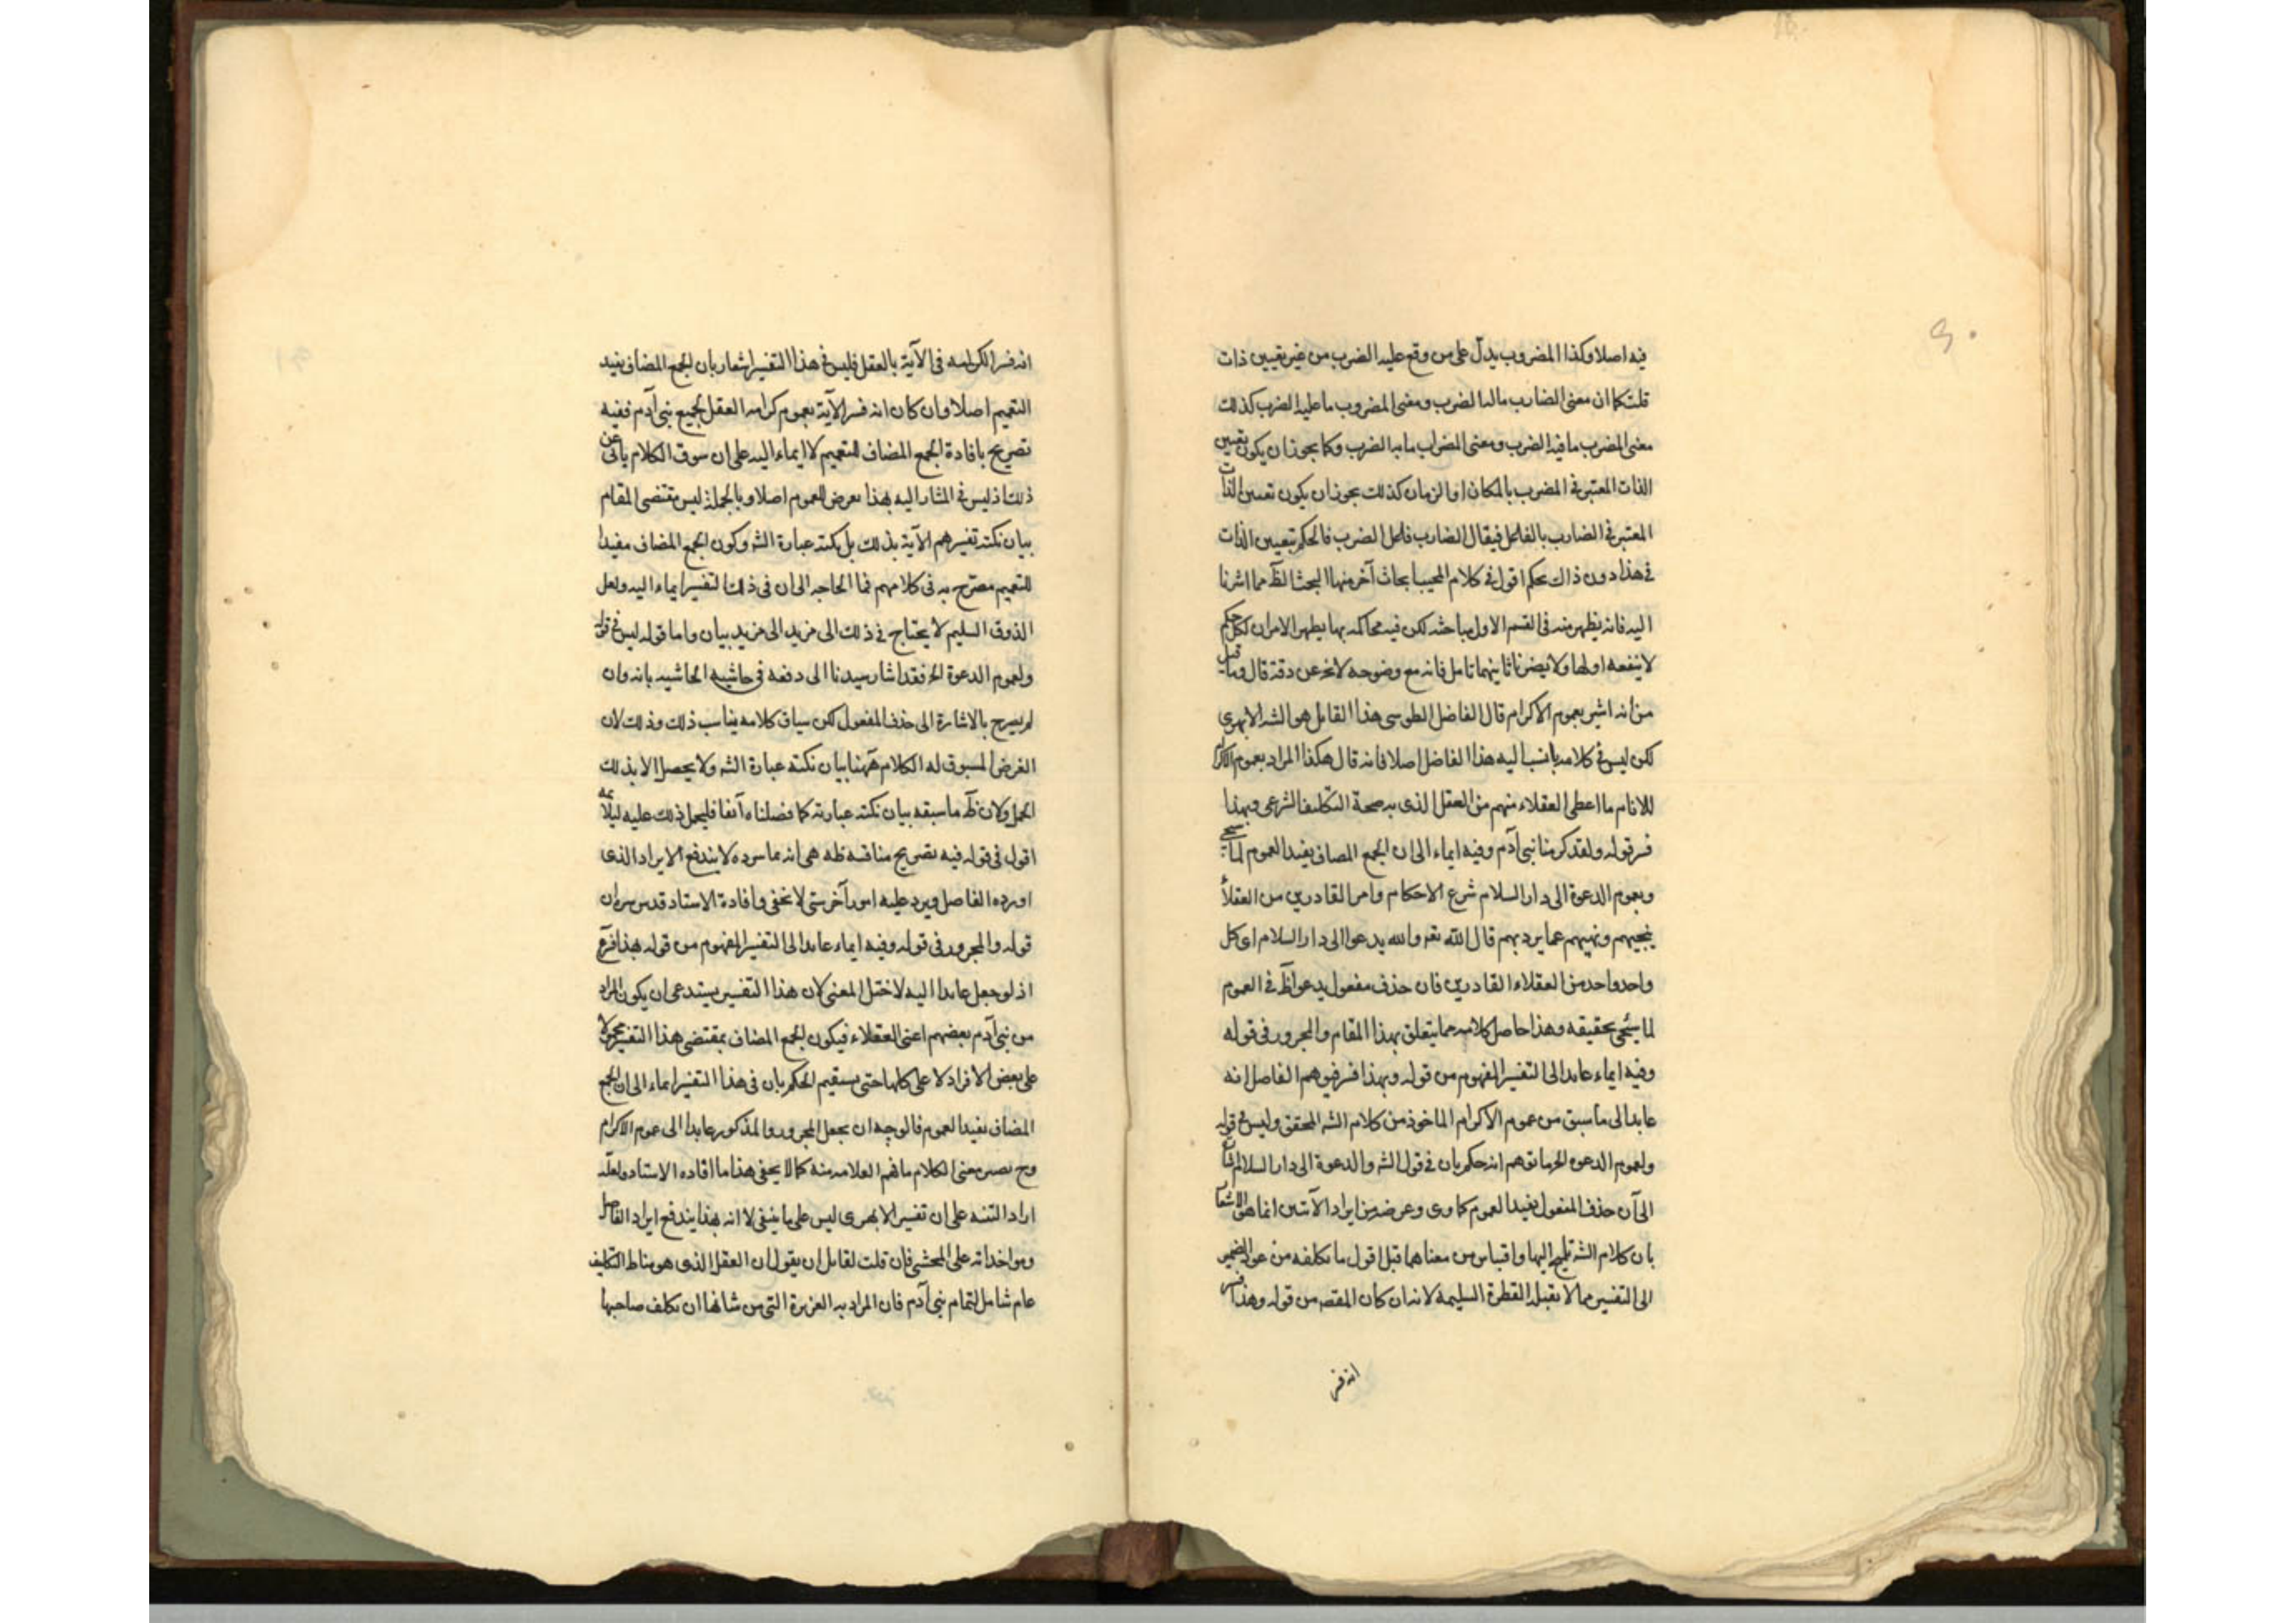 فيه اصلا وكذا المضروب يدل على من وقع عليه الضرب من غير تعيين ذات
قلت كما ان معنى الضارب ماله الضرب ومعنى المضروب ما عليه الضرب كذلك
معنى المضرب ما فيه الضرب ومعنى المضراب ما به الضرب وكما يجوز ان يكون تعيين
الذات المعتبر في المضرب بالمكان او الزمان كذلك يجوز ان يكون تعيين الذات
المعتبر في الضارب بالفاعل فيقال الضارب فاعل الضرب فالحكم بتعيين الذات
في هذا دون ذاك تحكم اقول في كلام المجيب ابحاث آخر منها البحث الظ مما اشرنا
اليه فانه يظهر منه في القسم الاول مباحثه لكن فيه محاكمه بها يظهر الامران لكل حكم
لا ينفعه اولها ولا يضرنا ثانيهما تامل فانه مع وضوحه لا يخ عن دقة قال وما قيل
من انه اشير بعموم الاكرام قال الفاضل الطوسى هذا القايل هو الشه الابهرى
لكن ليس في كلامه ما نسبا ليه هذا الفاضل اصلا فانه قال هكذا المراد بعموم الاكرام
للانام ما اعطى العقلاء منهم من العقل الذى به صحة التكليف الشرعى وبهذا
فسر قوله ولقد كرمنا بنى آدم وفيه ايماء الى ان الجمع المضاف يفيد العموم لما سيجئ
وبعموم الدعوة الى دار السلام شرع الاحكام وامر القادرين من العقلاء
ينجيهم ونهيهم عما يرد بهم قال الله تعه والله يدعوا الى دار السلام اى كل
واحد واحد من العقلاء القادرين فان حذف مفعول يدعو اظ في العموم
لما سيجئ تحقيقه وهذا حاصل كلامه مما يتعلق بهذا المقام والمجرور في قوله
وفيه ايماء عايد الى التفسير المفهوم من قوله وبهذا فسر فيوهم الفاضل انه
عايد الى ما سبق من عموم الاكرام الماخوذ من كلام الشه المحقق وليس في قوله
ولعموم الدعوة الخ ما توهم انه حكم بان في قول الشه والدعوة الى دار السلام
الى ان حذف المفعول يفيد العموم كما وى وغرضه من ايراد الآيتين انما هو الاشعار
بان كلام الشه تلميح اليها واقتباس من معناهما قيل اقول ما تكلفه من عود الضمير
الى التفسير مما لا يقبله الفطرة السليمة لانه ان كان المقصه من قوله وهذا فسر
انه فسر
انه فسر الكرامه في الآية بالعقل فليس في هذا التفسير اشعار بان الجمع المضاف يفيد
التعميم اصلا وان كان انه فسر الآية بعموم كرامه العقل لجميع بنى آدم ففيه
تصريح بافادة الجمع المضاف للتعميم لا ايماء اليه على ان سوق الكلام يابى عن
ذلك اذ ليس في المشار اليه بهذا تعرض للعموم اصلا وبالجملة ليس مقتضى المقام
بيان نكتة تفسيرهم الآية بذلك بل نكتة عبارة الشه وكون الجمع المضاف مفيدا
للتعميم مصرح به في كلامهم فما الحاجه الى ان في ذلك التفسير ايماء اليه ولعل
الذوق السليم لا يحتاج في ذلك الى مزيد الى مزيد بيان واما قوله ليس في قوله
ولعموم الدعوة الخ فقد اشار سيدنا الى دفعه في حاشيه الحاشيه بانه وان
لم يصرح بالاشارة الى حذف المفعول لكن سياق كلامه يناسب ذلك وذلك لان
الغرض المسوق له الكلام ههنا بيان نكته عبارة الشه ولا يحصل الا بذلك
الحمل ولان ظ ما سبقه بيان نكته عبارته كما فصلناه آنفا فليحمل ذلك عليه ليلائمه
اقول في قوله فيه تصريح مناقشه ظه هى انه عا سرده لا يندفع الايراد الذى
اورده الفاضل ويرد عليه امور آخر ستى لا تخفى وافادة الاستاد قدس سره ان
قوله والمجرور في قوله وفيه ايماء عايد الى التفسير المفهوم من قوله هذا
اذ لو جعل عايدا اليه لاختل المعنى لان هذا التفسير يستدعى ان يكون المراد
من بنى آدم بعضهم اعنى العقلاء فيكون الجمع المضاف بمقتضى هذا التفسير محمولا
على بعض الافراد لا على كلها حتى يستقيم الحكم بان في هذا التفسير ايماء الى ان الجمع
المضاف يفيد العموم فالوجه ان يجعل المجرور والمذكور عايدا الى عموم الاكرام
وح يصير معنى الكلام ما فهم العلامه منه كما لا يخفى هذا ما افاده الاستاد ولعله
اراد التنبه على ان تفسير الابهرى ليس على ما ينبغى لا انه بهذا يندفع ايراد الفاضل
ومواخذاته على المحشى فان قلت لقايل ان يقول ان العقل الذى هو مناط التكليف
عام شامل لتمام بنى آدم فان المراد به الغريزة التى من شانها ان تكلف صاحبها